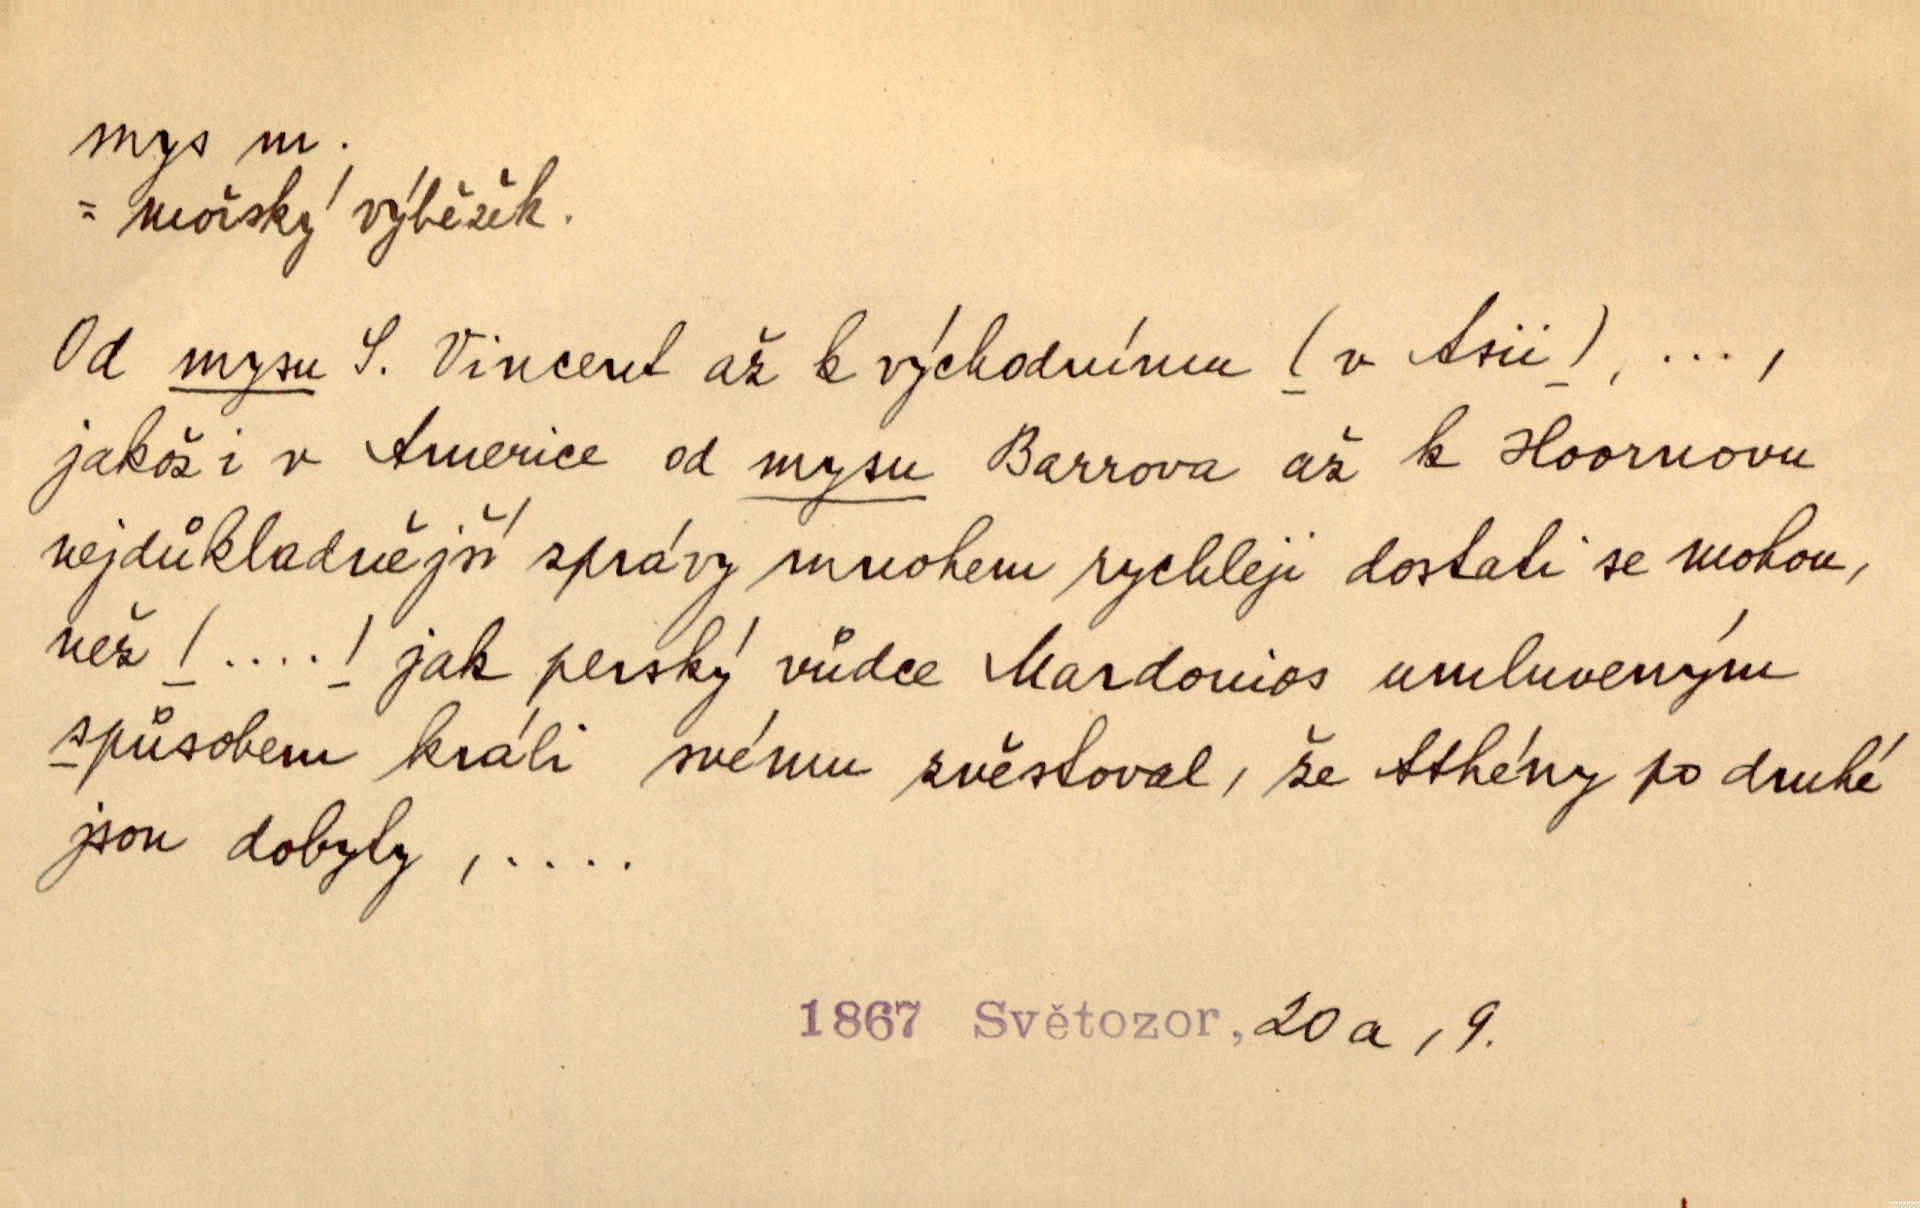 mys m.
= mořský výběžek.
Od mysu S. Vincent až k východnímu (v Asii), ...,
jakož i v Americe od mysu Barrova až k Hoornovu
nejdůkladnější správy mnohem rychleji dostati se mohou,
než (....) jak perský vůdce Mardonios umluveným
spůsobem králi svému zvěstoval, že Athény po druhé
jsou dobyty, .....
1867 Světozor, 20a, 9.